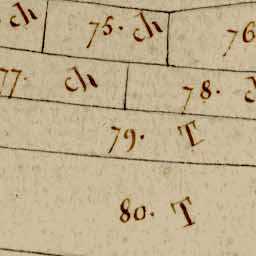 ch 75. ch 76
77. ch 78.
79. T
80. T